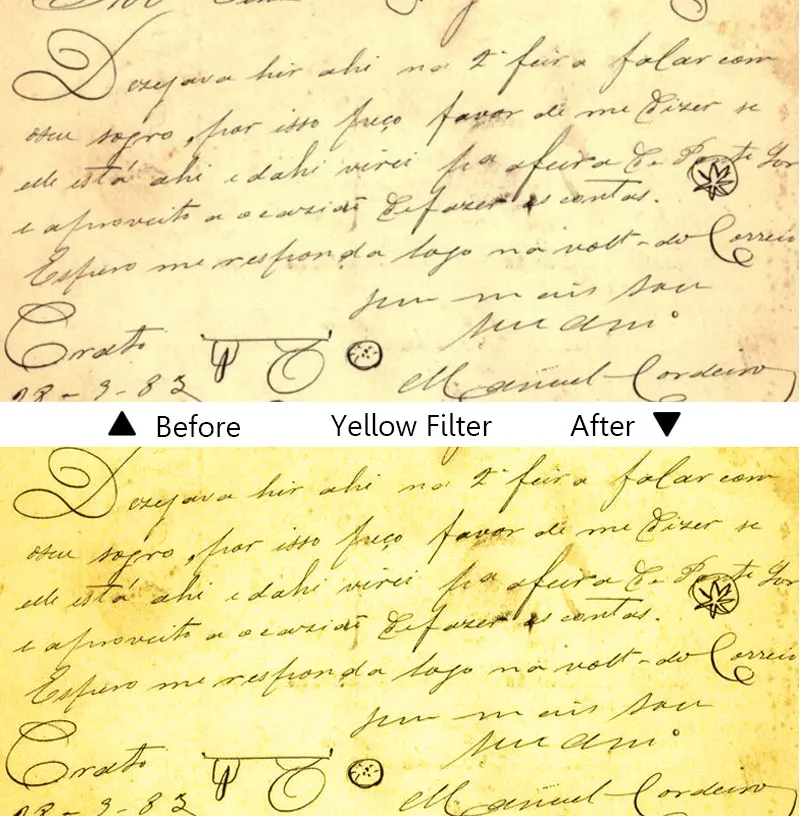 Dezejava hir ahi na 2ª feira falar com
oseu sogro, por isso faço favor de me dizer se
elle está ahi e dahi virei pª afeira de
e aproveito a ocazião defazer as contas.
Espero me responda logo na volt-do Correio
sou
Crato
28-3-83
Manuel Cordeiro
▲ Before Yellow Filter After ▼
Dezejava hir ahi na 2ª feira falar com
oseu sogro, por isso faço favor de me dizer se
elle está ahi e dahi virei pª afeira de
e aproveito a ocazião defazer as contas.
Espero me responda logo na volt-do Correio
sou
Crato
28-3-83
Manuel Cordeiro